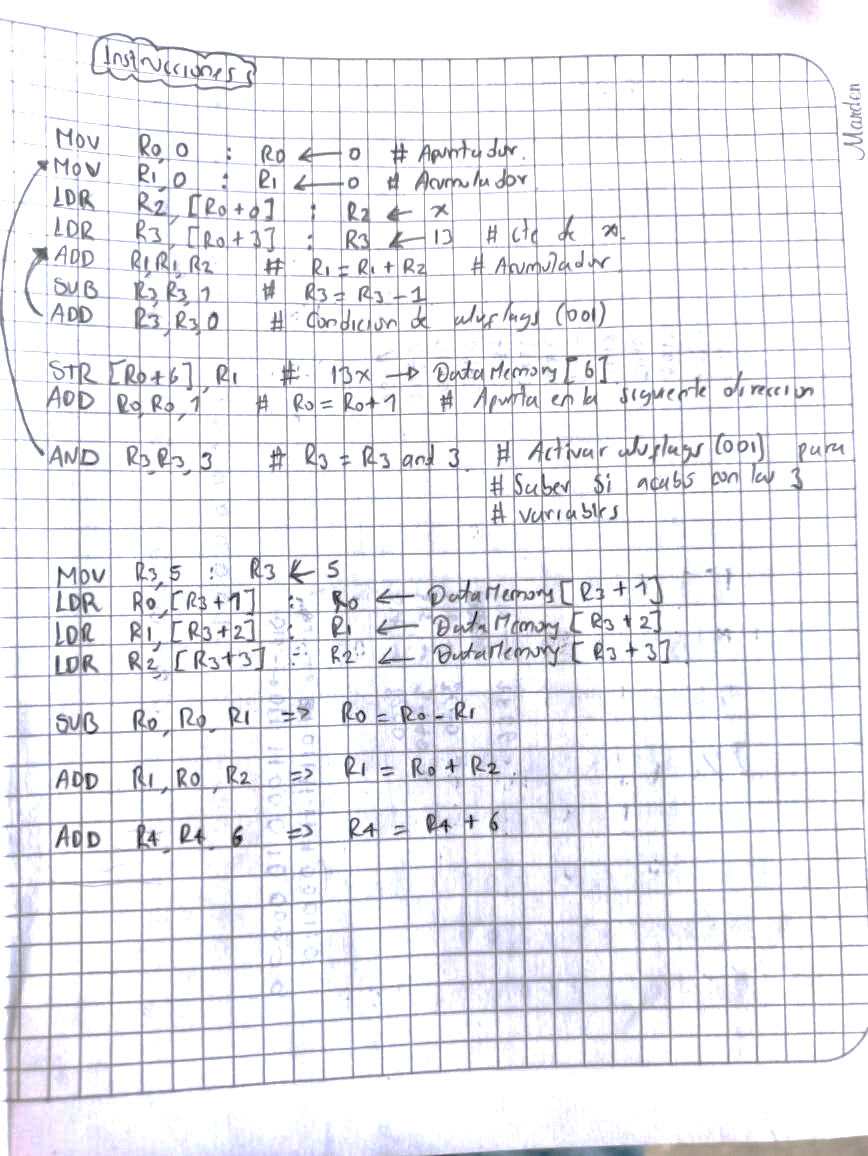 Instrucciones
Marden
MOV R0,0 : R0 ← 0 # Apuntador.
MOV R1,0 : R1 ← 0 # Acumulador
LDR R2, [R0+0] : R2 ← x
LDR R3, [R0+3] : R3 ← 13 # cte de x.
ADD R1,R1,R2 # R1 = R1 + R2 # Acumulador
SUB R3,R3,1 # R3 = R3 - 1
ADD R3,R3,0 # Condicion de aluflags (001)
STR [R0+6], R1 # 13x → DataMemory [6]
ADD R0,R0,1 # R0 = R0+1 # Apunta en la siguiente direccion
AND R3,R3,3 # R3 = R3 and 3 # Activar aluflags (001) para
# Saber si acabs con las 3
# variables
MOV R3,5 : R3 ← 5
LDR R0,[R3+1] : R0 ← DataMemory [R3+1]
LDR R1, [R3+2] : R1 ← DataMemory [R3+2]
LDR R2, [R3+3] : R2 ← DataMemory [R3+3]
SUB R0, R0, R1 => R0 = R0 - R1
ADD R1, R0, R2 => R1 = R0 + R2.
ADD R4, R4, 6 => R4 = R4 + 6